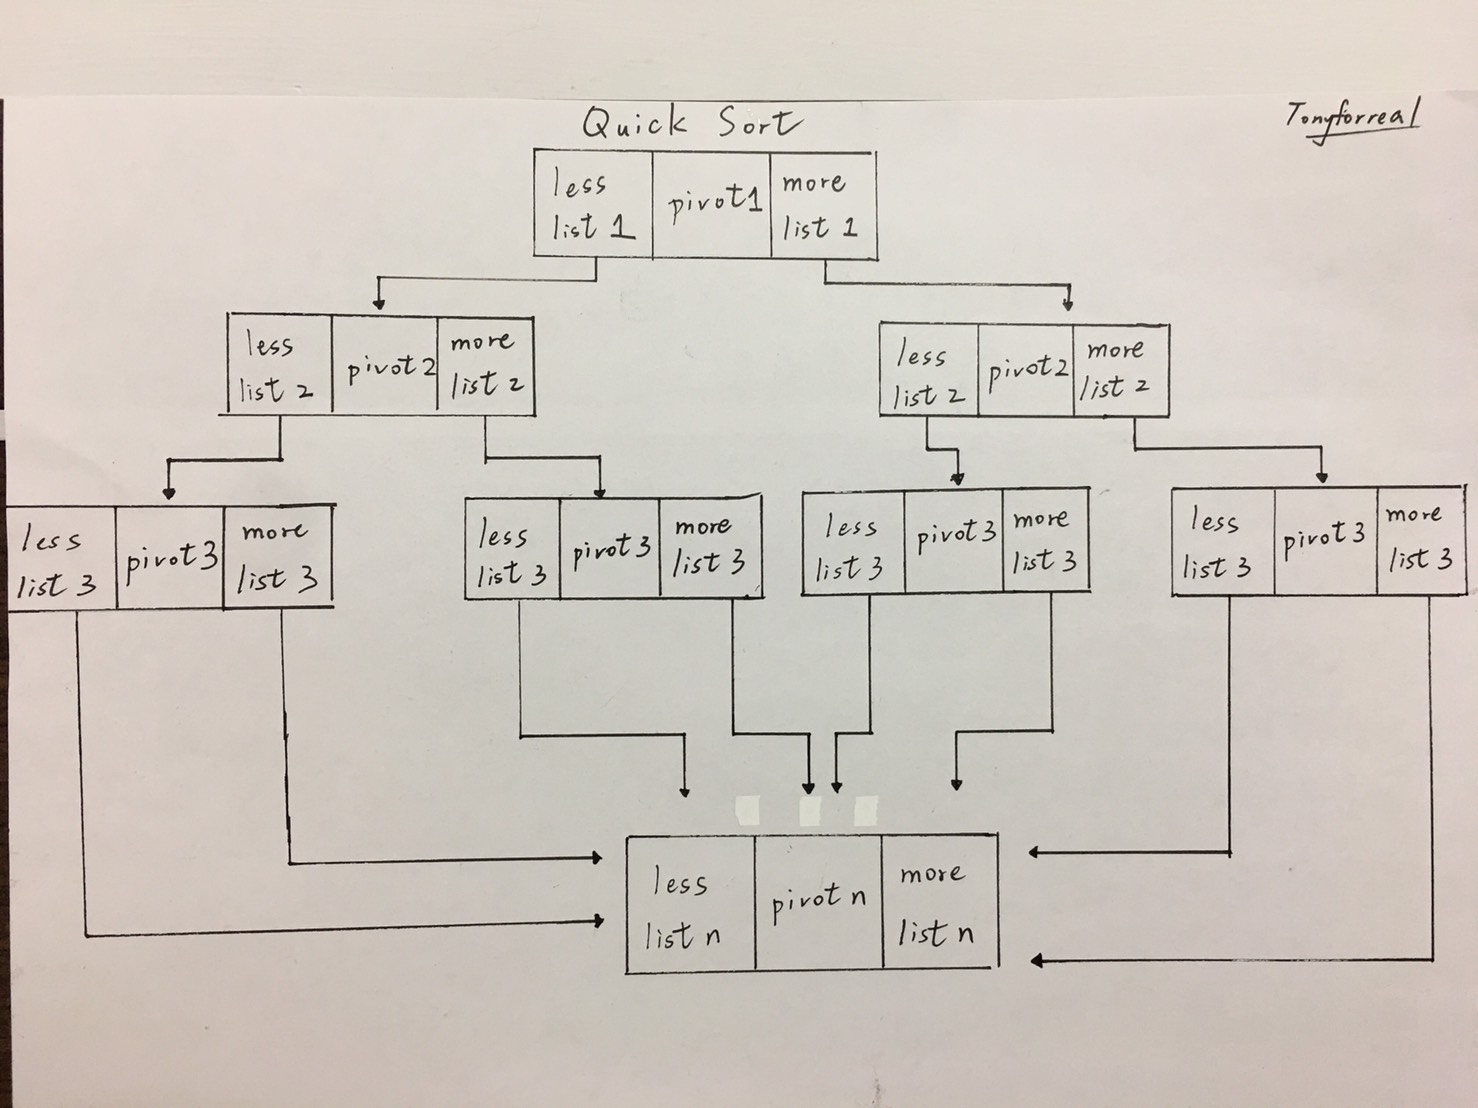 Quick Sort
Tonyforreal
less
list 1
pivot1
more
list 1
less
list 2
pivot2
more
list 2
less
list 2
pivot2
more
list 2
less
list 3
pivot3
more
list 3
less
list 3
pivot3
more
list 3
less
list 3
pivot3
more
list 3
less
list 3
pivot3
more
list 3
less
list n
pivot n
more
list n